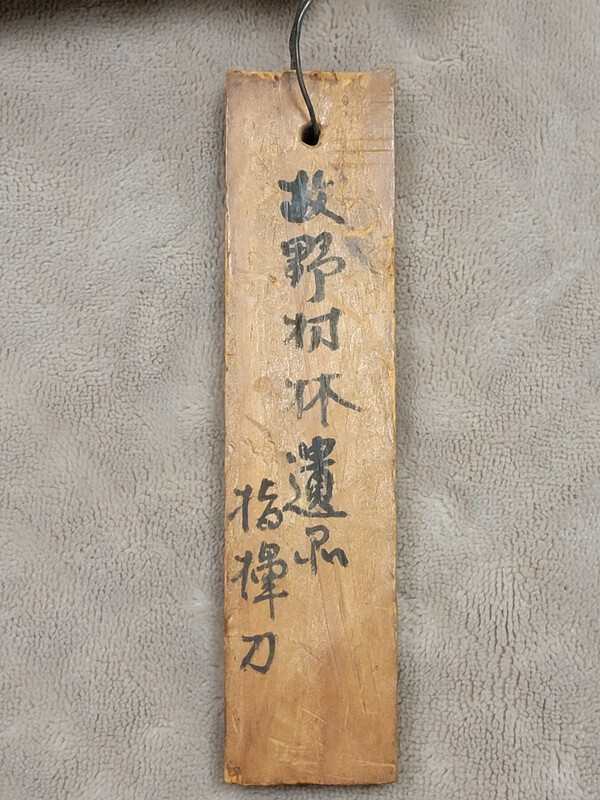 故野村遺品
指揮刀